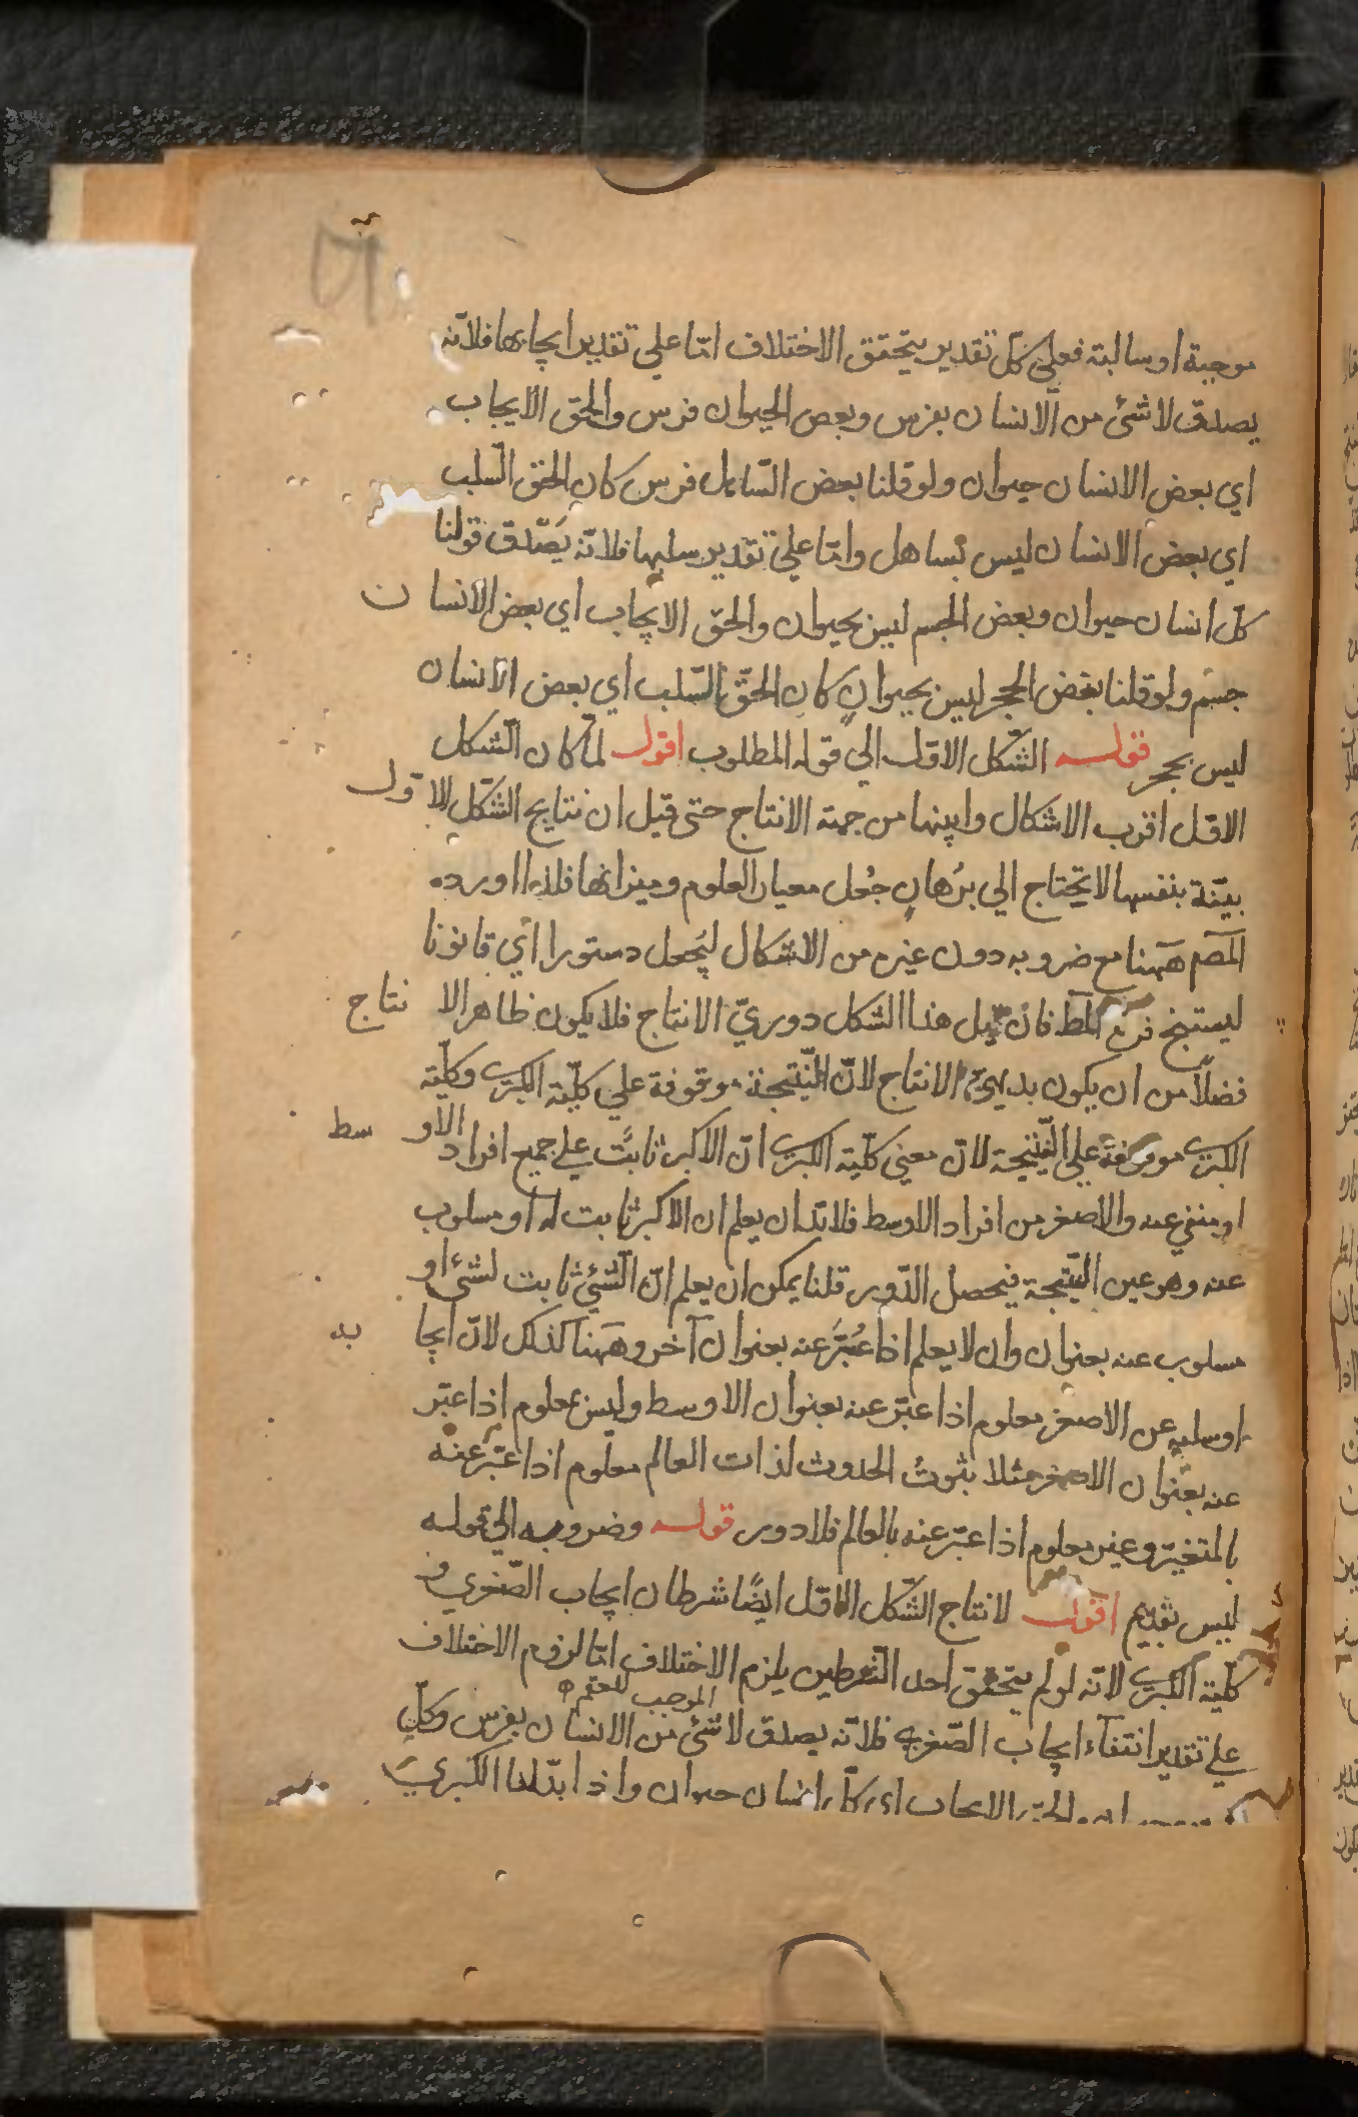 موجبة او سالبة فعلي كلّ تقدير يتحقق الاختلاف امّا علي تقدير ايجابها فلانّه
يصدق لا شئ من الانسان بفرس وبعض الحيوان فرس والحق الايجاب
اي بعض الانسان حيوان ولو قلنا بعض الصّاهل فرس كان الحق السّلب
اي بعض الانسان ليس بصاهل وامّا علي تقدير سلبها فلانّه يصدق قولنا
كل انسان حيوان وبعض الجسم ليس بحيوان والحق الايجاب اي بعض الانسان
جسم ولو قلنا بعض الحجر ليس بحيوان كان الحقّ السّلب اي بعض الانسان
ليس بحجر قوله الشّكل الاوّل الي قوله المطلوب اقول لمّا كان الشّكل
الاوّل اقرب الاشكال وابينها من جهة الانتاج حتى قيل ان نتايج الشّكل الاوّل
بيّنة بنفسها لا يحتاج الي برهان جُعل معيار العلوم وميزانها فلذا اورده
المص ههنا مع ضروبه دون غيره من الاشكال ليجعل دستورا اي قانونا
ليستنتج منه المط فان قيل هذا الشكل دوريّ الانتاج فلا يكون ظاهر الانتاج
فضلا من ان يكون بديهيّ الانتاج لانّ النّتيجة موقوفة علي كلّيّة الكبرى وكلّيّة
الكبرى موقوفة علي النّتيجة لانّ معني كلّيّة الكبرى انّ الاكبر ثابت علي جميع افراد الاوسط
او منفي عنه والاصغر من افراد الاوسط فلا بدّ ان يعلم ان الاكبر ثابت له او مسلوب
عنه وهو عين النّتيجة فيحصل الدّور قلنا يمكن ان يعلم انّ الشّئ ثابت لشئ او
مسلوب عنه بعنوان وان لا يعلم اذا عُبّر عنه بعنوان آخر وههنا كذلك لانّ ايجابه
او سلبه عن الاصغر معلوم اذا عبّر عنه بعنوان الاوسط وليس بمعلوم اذا عبّر
عنه بعنوان الاصغر مثلا ثبوت الحدوث لذات العالم معلوم اذا عبّر عنه
بالمتغيّر وغير معلوم اذا عبّر عنه بالعالم فلا دور قوله وضروبه الي قوله
ليس بقديم اقول لانتاج الشّكل الاوّل ايضًا شرطان ايجاب الصّغري و
كلّيّة الكبرى لانّه لو لم يتحقق احد الشّرطين يلزم الاختلاف امّا لزوم الاختلاف
الموجب للعقم
علي تقدير انتفاء ايجاب الصّغري فلانّه يصدق لا شئ من الانسان بفرس وكل
والحق الايجاب اي كلّ انسان حيوان واذا بدّلنا الكبري